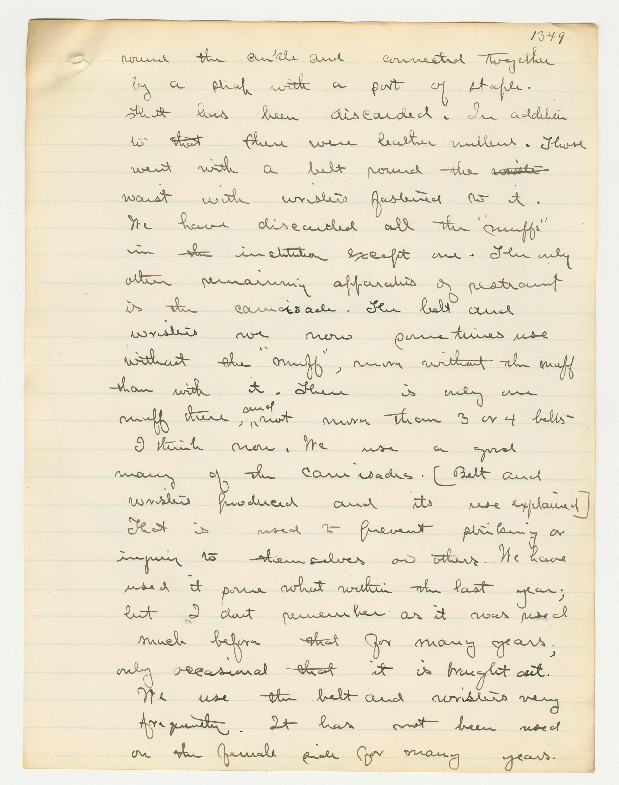 1349
round the ankle and connected together
by a strap with a sort of staple.
That has been discarded. In addition
to that there were leather mittens. Those
went with a belt round the waists
waist with wristers fastened to it.
We have discarded all the "muffs"
in the institution except one. The only
other remaining apparatus of restraint
is the camisade. The belt and
wristers we now sometimes use
without the "muff", more without the muff
than with it. There is only one
muff there, and not more than 3 or 4 belts
I think now. We use a good
many of the camisades. [Belt and
wristers produced and its use explained]
That is used to prevent striking or
injury to themselves or others. We have
used it some what within the last year;
but I dont remember as it was used
much before that for many years;
only occasional that it is brought out.
We use the belt and wristers very
frequently. It has not been used
on the female side for many years.